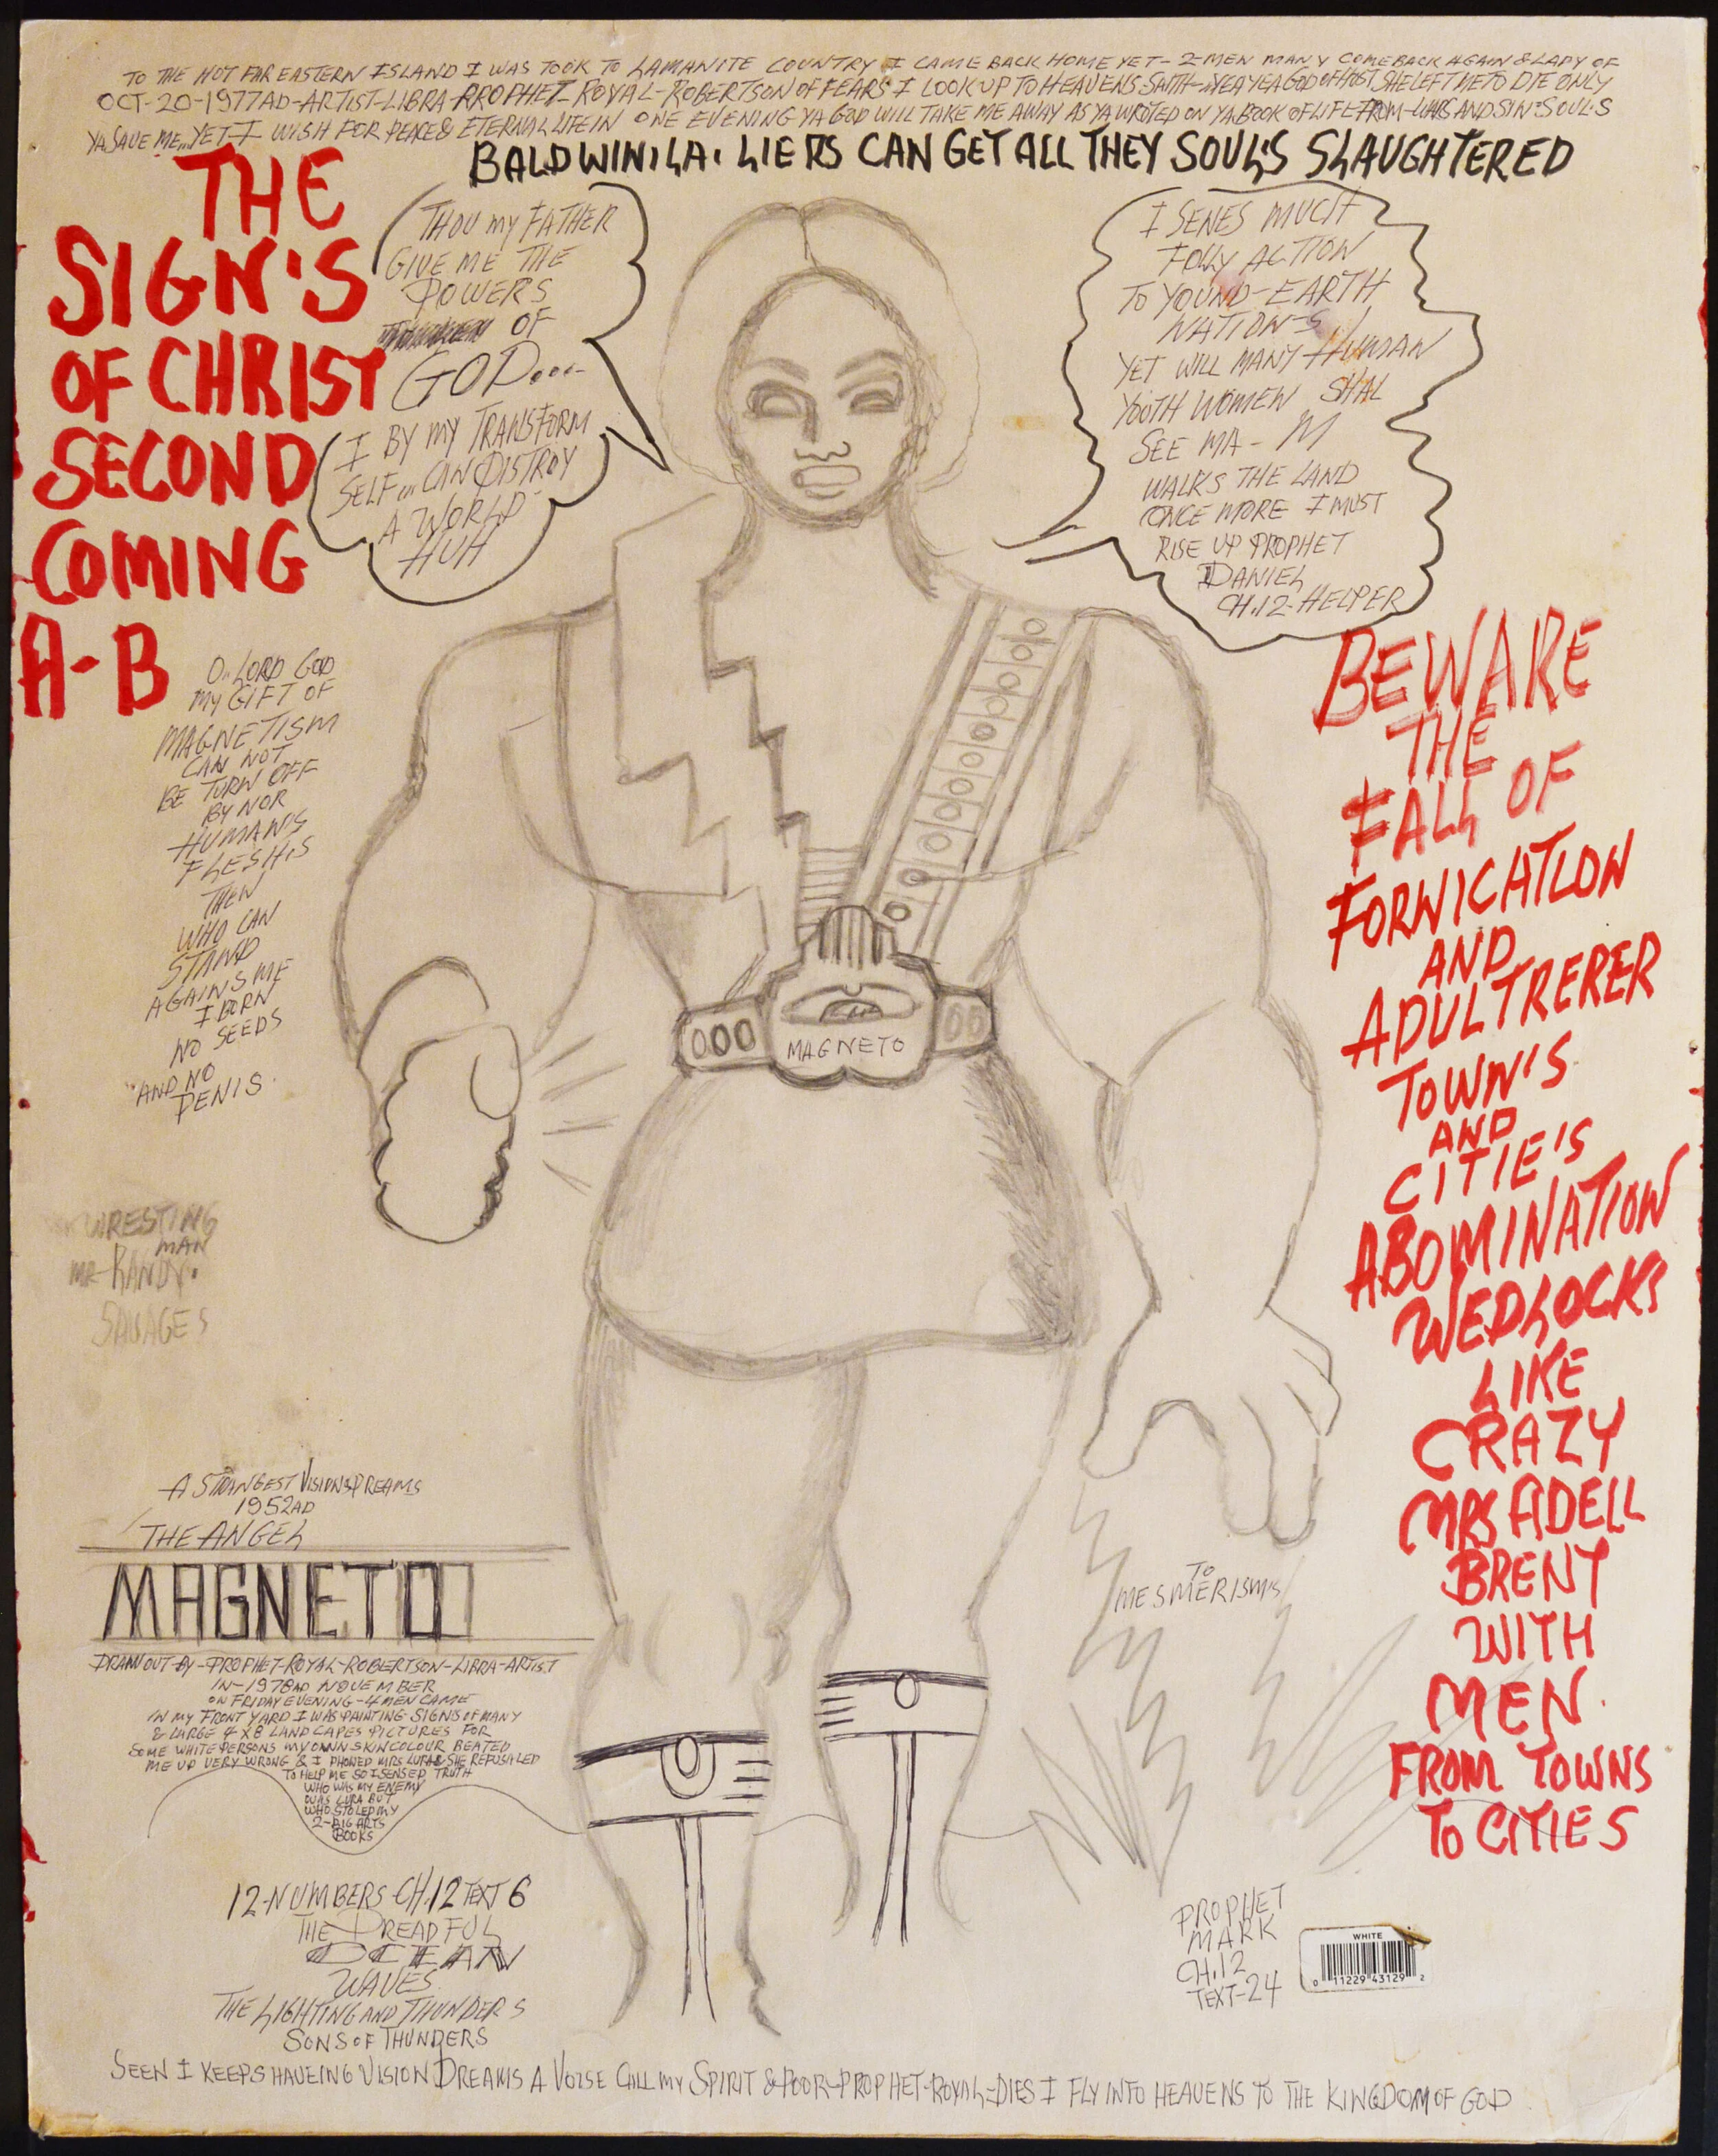 TO THE HOT FAR EASTERN ISLAND I WAS TOOK TO LAMANITE COUNTRY I CAME BACK HOME YET - 2-MEN MANY COMEBACK AGAIN & LADY OF
OCT-20-1977AD-ARTIST-LIBRA-PROPHET-ROYAL-ROBERTSON OF FEARS I LOOK UP TO HEAVENS SAITH-YEA YEA GOD OF HOST SHE LEFT ME TO DIE ONLY
YA SAVE ME, YET-I WISH FOR PEACE & ETERNAL LIFE IN ONE EVENING YA GOD WILL TAKE ME AWAY AS YA WROTED ON YA BOOK OF LIFE-FROM-LIARS AND SIN=SOUL'S
BALDWIN.LA. LIERS CAN GET ALL THEY SOUL'S SLAUGHTERED
THE
SIGN'S
OF CHRIST
SECOND
COMING
A-B
THOU MY FATHER
GIVE ME THE
POWERS
OF
GOD...
I BY MY TRANSFORM
SELF... CAN DISTROY
A WORLD
HUH
I SENES MUCH
FOLLY ACTION
TO YOUND-EARTH
NATION-S
YET WILL MANY HUMAN
YOOTH WOMEN SHAL
SEE MA-M
WALKS THE LAND
ONCE MORE I MUST
RISE UP PROPHET
DANIEL
CH.12-HELPER
O.. LORD GOD
MY GIFT OF
MAGNETISM
CAN NOT
BE TURN OFF
BY NOR
HUMAN'S
FLESHS
THEN
WHO CAN
STAND
AGAINS ME
I BORN
NO SEEDS
"AND NO
PENIS.
BEWARE
THE
FALL OF
FORNICATION
AND
ADULTRERER
TOWN'S
AND
CITIE'S
ABOMINATION
WEDLOCKS
LIKE
CRAZY
MRS ADELL
BRENT
WITH
MEN.
FROM TOWNS
TO CITIES
MAGNETO
WRESTING
MAN
MR-RANDY.
SAVAGES
A STRANGEST VISIONS DREAMS
1952AD
THE ANGEL
MAGNETO
DRAWN OUT-BY-PROPHET-ROYAL-ROBERTSON-LIBRA-ARTIST
IN-1978AD NOVEMBER
ON FRIDAY EVENING-4 MEN CAME
IN MY FRONT YARD I WAS PAINTING-SIGNS OF MANY
& LARGE 4 X 8 LANDCAPES PICTURES FOR
SOME WHITE PERSONS MY OWN SKIN COLOUR BEATED
ME UP VERY WRONG & I PHONED MRS LURA & SHE REFUSALED
TO HELP ME SO I SENSED TRUTH
WHO WAS MY ENEMY
WAS LURA BUT
WHO STOLED MY
2-BIG ARTS
BOOKS
TO
MESMERISM'S
12-NUMBERS-CH.12 TEXT 6
THE DREADFUL
OCEAN
WAVES.
THE LIGHTING AND THUNDERS
SONS OF THUNDERS
PROPHET
MARK
CH.12
TEXT-24
WHITE
0 11229 43129 2
SEEN I KEEPS HAVEING VISION DREAMS A VOISE CALL MY SPIRIT & POOR-PROPHET-ROYAL=DIES I FLY INTO HEAVENS TO THE KINGDOM OF GOD